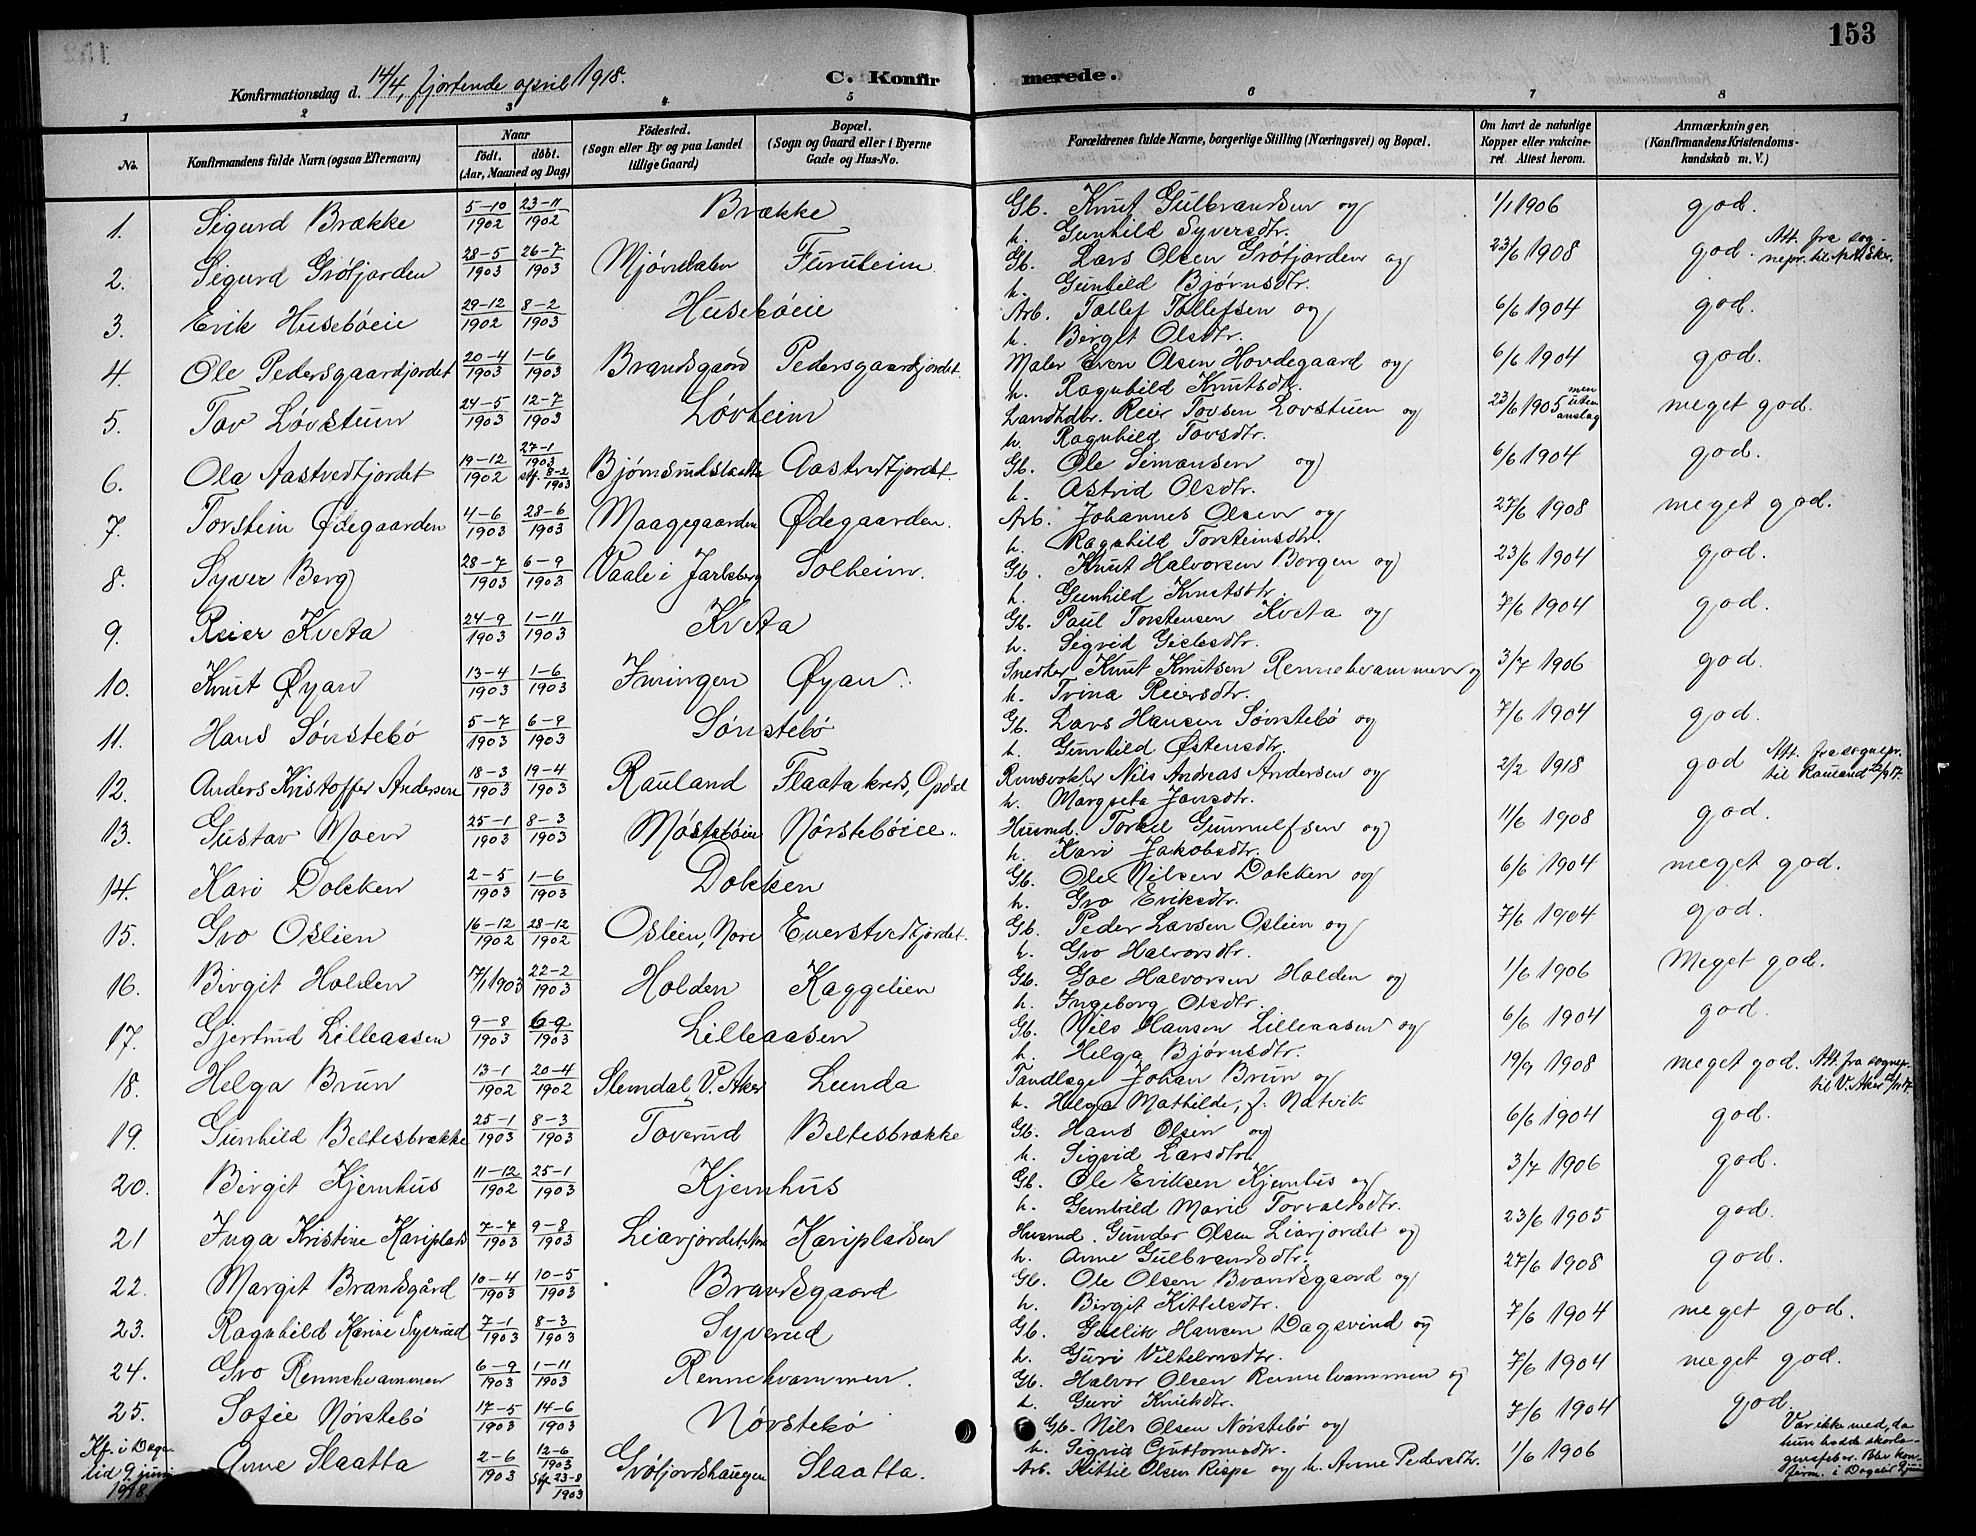 153
Konfirmationsdag d. 14/4, fjortende april 1918.
C. Konfirmerede.
1 2 3 4 5 6 7 8
No. Konfirmandens fulde Navn (ogsaa Efternavn) Naar født. døbt. (Aar, Maaned og Dag) Fødested. (Sogn eller By og paa Landet tillige Gaard) Bopæl. (Sogn og Gaard eller i Byerne Gade og Hus-No. Forældrenes fulde Navne, borgerlige Stilling (Næringsvei) og Bopæl. Om havt de naturlige Kopper eller vakcineret. Attest herom. Anmærkninger, (Konfirmandens Kristendomskundskab m. V.)
1. Sigurd Brække 5-10 1902 23-11 1902 Brække Gb. Knut Gulbrandsen og 1/1 1906 god.
h. Gunhild Syversdtr.
2. Sigurd Grøfjorden 28-5 1903 26-7 1903 Mjøndalen Furuheim Gb. Lars Olsen Grøfjorden og 23/6 1908 god. Att. fra sognepr. til
h. Gunhild Bjørnsdtr.
3. Erik Husebøeie 29-12 1902 8-2 1903 Husebøeie Arb. Tollef Tollefsen og 6/6 1904 god.
h. Birgit Olsdtr.
4. Ole Pedersgaardjordet 20-4 1903 1-6 1903 Brandsgaard Pedersgaardjordet. Maler Even Olsen Hovdegaard og 6/6 1904 god.
h. Ragnhild Knutsdtr.
5. Tov Løvstuen 24-5 1903 12-7 1903 Løvheim Landhdlr. Reier Tovsen Lovstuen og 23/6 1905 men uten anslag meget god.
h. Ragnhild Tovsdtr.
6. Ola Aastvedtjordet 19-12 1902 27-1 1903 stf. 8-2 1903 Bjørnsrudslaatta Aastvedtjordet. Gb. Ole Simonsen og 6/6 1904 god.
h. Astrid Olsdtr.
7. Torstein Ødegaarden 4-6 1903 28-6 1903 Maagegaarden Ødegaarden. Arb. Johannes Olsen og 27/6 1908 meget god.
h. Ragnhild Torsteinsdtr.
8. Syver Berg 28-7 1903 6-9 1903 Vaale i Jarlsberg Solheim. Gb. Knut Halvorsen Borgen og 23/6 1904 god.
h. Gunhild Knutsdtr.
9. Reier Kveta 24-9 1903 1-11 1903 Kveta Gb. Paul Torstensen Kveta og 7/6 1904 god.
h. Sigrid Gislesdtr.
10. Knut Øyan 13-4 1903 1-6 1903 Imingen Øyan. Snedker Knut Knutsen Rennehvammen og 3/7 1906 god.
h. Trina Reiersdtr.
11. Hans Sønstebø 5-7 1903 6-9 1903 Sønstebø Gb. Lars Hansen Sønstebø og 7/6 1904 god.
h. Gunhild Østensdtr.
12. Anders Kristoffer Andersen 18-3 1903 19-4 1903 Rauland Flaata kreds, Opdal Nils Andreas Andersen og 2/2 1918 god Att. fra sognepr. til Rauland
h. Margreta Jansdtr.
13. Gustav Moen 25-1 1903 8-3 1903 Nørstebøeie. Husmd. Torkel Gunnulfsen og 11/6 1908 god.
h. Kari Jakobsdtr.
14. Kari Dokken 2-5 1903 1-6 1903 Dokken Gb. Ole Nilsen Dokken og 6/6 1904 meget god.
h. Gro Eriksdtr.
15. Gro Oslien 16-12 1902 28-12 1902 Oslien, Nore Enerstvedtjordet. Gb. Peder Larsen Oslien og 7/6 1904 god.
h. Gro Halvorsdtr.
16. Birgit Holden 17/1 1903 22-2 1903 Holden Kaggelien Gb. Goe Halvorsen Holden og 1/6 1906 Meget god.
h. Ingeborg Olsdtr.
17. Gjertrud Lilleaasen 9-8 1903 6-9 1903 Lilleaasen Gb. Nils Hansen Lilleaasen og 6/6 1904 god.
h. Helga Bjørnsdtr.
18. Helga Brun 13-1 1902 20-4 1902 Slemdal V. Aker Lunda Tandlæge Johan Brun og 19/9 1908 meget god. Att. fra sognepr. til V. Aker
h. Helga Mathilde, f. Natvik
19. Gunhild Beltesbrække 25-1 1903 8-3 1903 Toverud Beltesbrække Gb. Hans Olsen og 6/6 1904 god.
h. Sigrid Larsdtr.
20. Birgit Kjemhus 11-12 1902 25-1 1903 Kjemhus Gb. Ole Eriksen Kjemhus og 3/7 1906 god.
h. Gunhild Marie Torvaldsdtr.
21 Inga Kristine Kariplads 7-7 1903 9-8 1903 Liarjordet, Nore Karipladsen Husmd. Gunder Olsen Liarjordet og 23/6 1905 god.
h. Anne Gulbrandsdtr.
22. Margit Brandsgård 10-4 1903 10-5 1903 Brandsgaard Gb. Ole Olsen Brandsgaard og 27/6 1908 god.
h. Birgit Kittilsdtr.
23. Ragnhild Karine Syverud 7-1 1903 8-3 1903 Syverud Gb. Gullik Hansen Dagsvind og 7/6 1904 meget god.
h. Guri Vilhelmsdtr.
24. Gro Rennehvammen 6-9 1903 1-11 1903 Rennehvammen. Gb. Halvor Olsen Rennehvammen og 7/6 1904 meget god.
h. Guri Knutsdtr.
25. Sofie Nørstebø 17-5 1903 14-6 1903 Nørstebø Gb. Nils Olsen Nørstebø og 7/6 1904 god.
h. Sigrid Guttormsdtr.
Kf. i Dagalid 9 juni 1918. Anne Slaatta 2-6 1903 12-6 1903 Stf. 23-8 1903 Grøfjordshaugen Slaatta. Arb. Kittil Olsen Rispe og h. Anne Pedersdtr. 1/6 1906 Var ikke med, da hun hadde skarlagensfeber. Blev konfirm. i Dagalid 9 juni